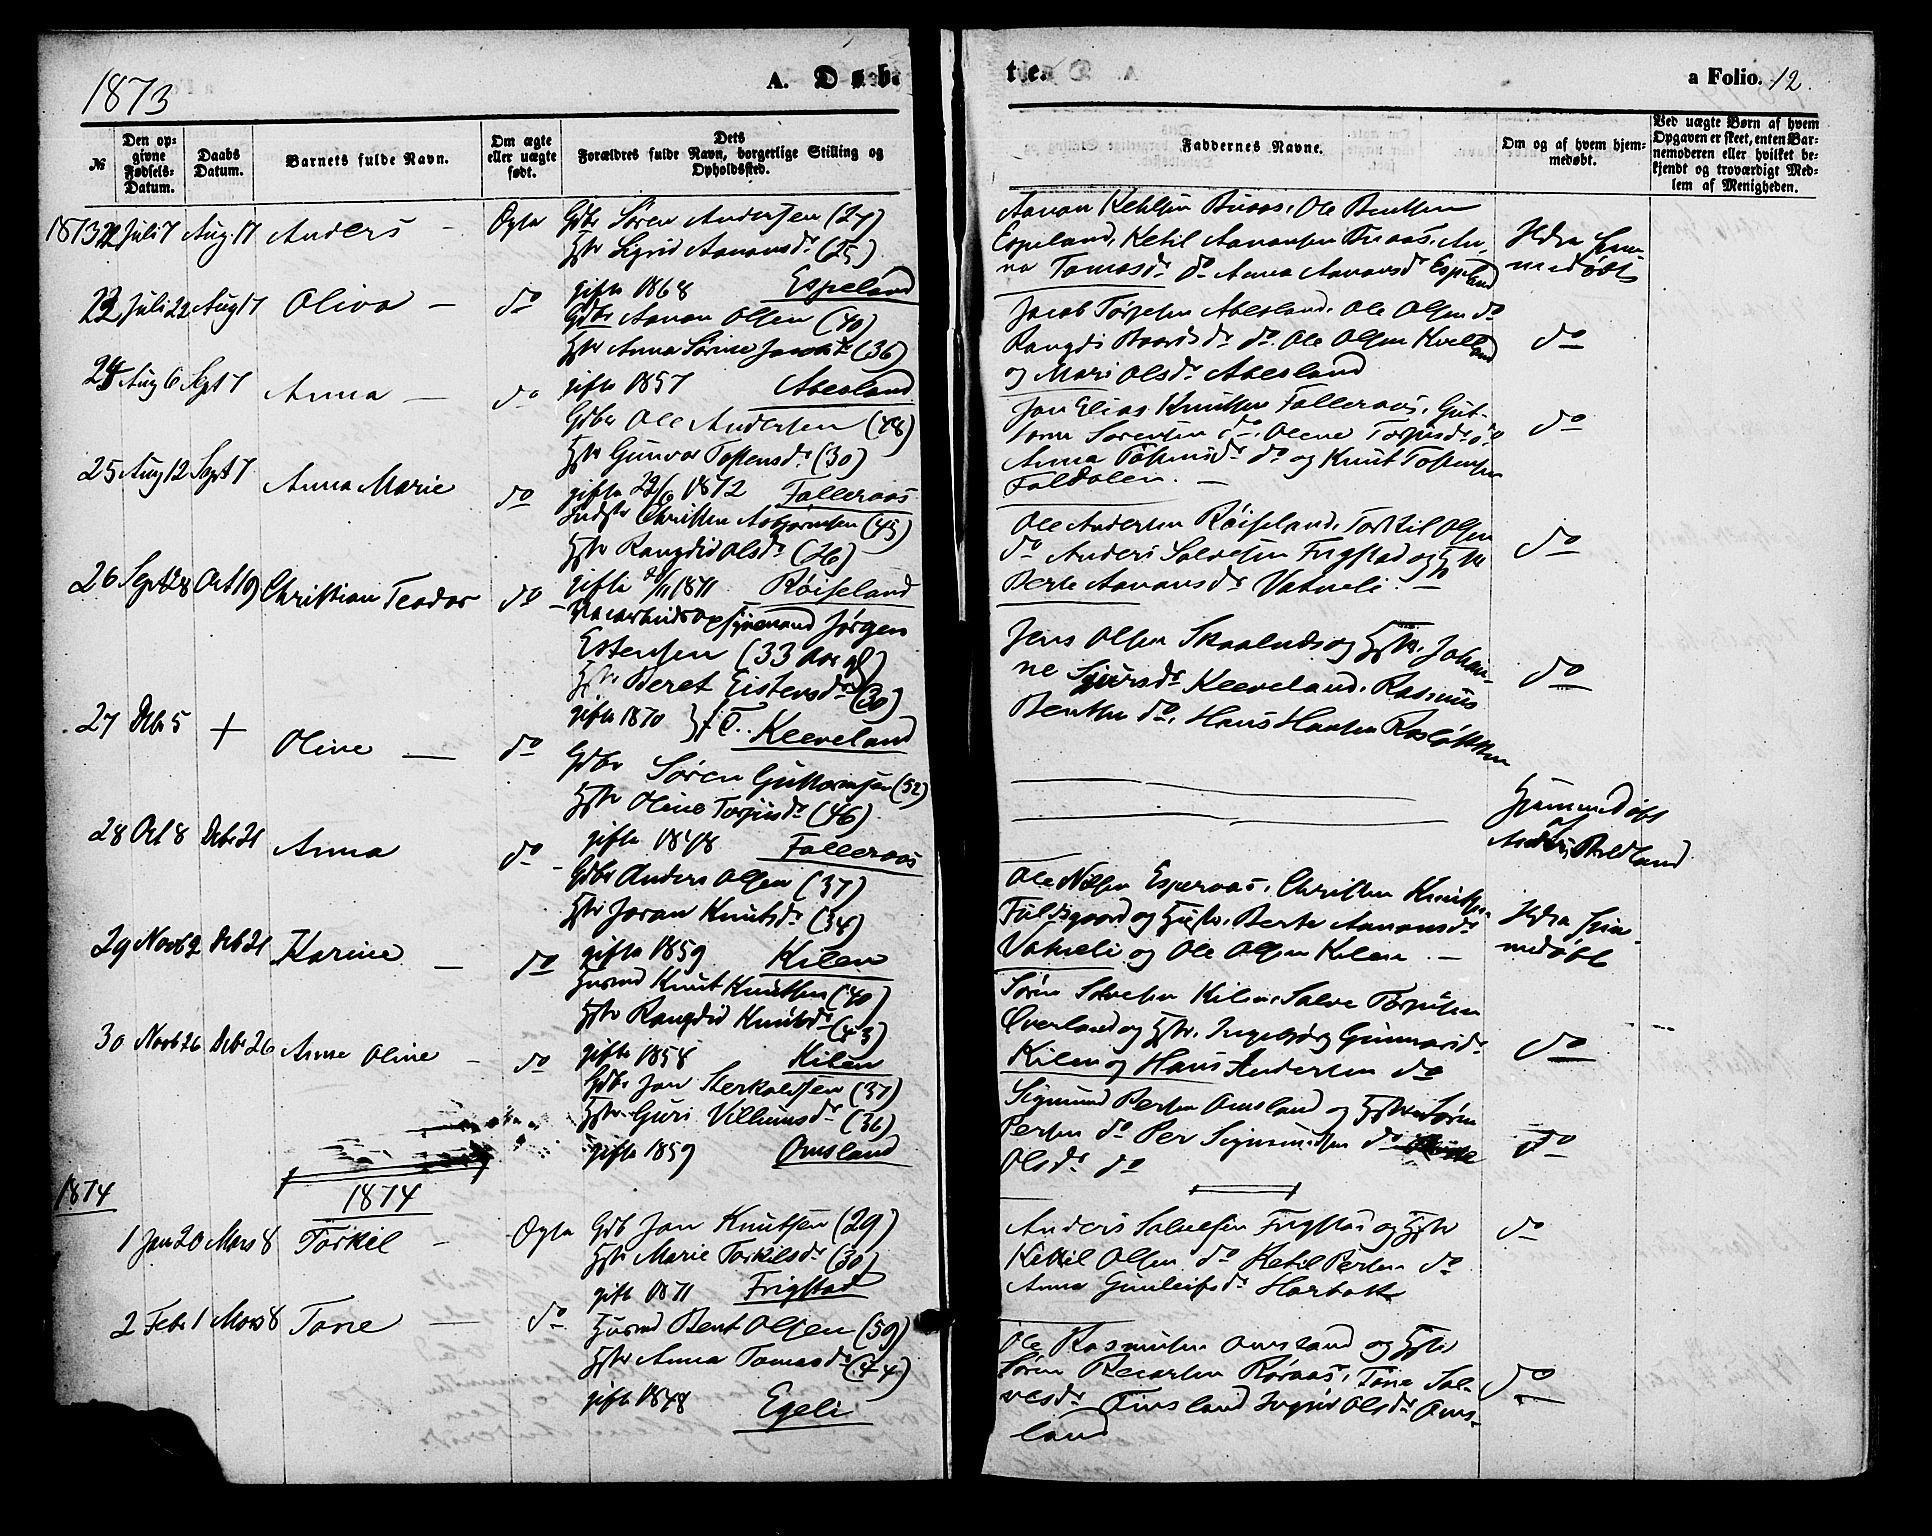 1873
A. Døbte.
a Folio. 12.
№
Den opgivne Fødsels-Datum.
Daabs Datum.
Barnets fulde Navn.
Om ægte eller uægte født.
Dets Forældres fulde Navn, borgerlige Stilling og Opholdssted.
Faddernes Navne.
Om og af hvem hjemmedøbt.
Ved uægte Børn af hvem Opgaven er skeet, enten Barnemoderen eller hvilket bekjendt og troværdigt Medlem af Menigheden.
1873 22 Juli 7 Aug. 17 Anders – Ægte Gdbr Søren Andersen (27)
Hstr Sigrid Aanonsdr (25)
gifte 1868 Espeland
Espeland, Ketil Aanonsen Bruaas, An-
na Tomasdr do Anna Aanonsdr Espeland
23 Juli 22 Aug 17 Oliva – do
Gdbr Aanon Olsen (40)
Hstr Anna Sørine Jacobsdr (36)
gifte 1857 Abesland
Jacob Torjesen Abesland, Ole Olsen do
og Mari Olsdr Abesland
do
24 Aug 6 Sept 7 Anna – do
Gdbr Ole Andersen (48)
Hstr Gunvor Tostensdr (30)
gifte 1872 Falleraas
Jon Elias Knutsen Falleraas, Gut-
torm Sorensen do, Olene Torjusdr do
Anna Tostensdr do og Knut Tostensen
Faldalen. –
do
25 Aug 12 Sept 7 Anna Marie do
Indstr Christen Asbjørnsen (45)
Hstr Rangdid Olsdr (26)
gifte 1871 Røiseland
Ole Andersen Røiseland, Torkil Olsen
do Anders Salvesen Frigstad og Hstr
Berte Aanonsdr Vatneli. –
do
26 Sept 28 Oct 19 Christian Teodor do
Jørgen
Estensen (33 Aar gl)
Hstr Beret Eistensdr (30)
gifte 1870 Keeveland
Jens Olsen Skaalnds og Hstr. Johan-
ne Sjursdr Keeveland, Rasmus
Bentsen do, Hans Hansen
do
27 Debr 5 + Oline – do
Gdbr Søren Guttormsen (52)
Hstr Oline Torjusdr (46)
gifte 1848 Falleraas
Hjemmedøbt
af
28 Oct 8 Debr 21 Anna do –
Gdbr Anders Olsen (37)
Hstr Joran Knutsdr (34)
gifte 1859 Kilen
Ole Nilsen Esperaas, Christen Knutsen
Fuldsgaard og Hustr. Berte Aanonsdr
Vatneli og Ole Olsen Kilen –
29 Novb 2 Deb 21 Karine – do
Husmd Knut Knutsen (40)
Hstr Rangdid Knutsdr (43)
gifte 1858 Kilen
Søren Salvesen Kilen, Salve Torjusen
Øverland og Hstr. Ingebjørg Gunnarsdr
Kilen og Hans Andersen do
do
30 Novb 26 Debr 26 Anne Oline – do
Gdbr Jon Sterkaldsen (37)
Hstr. Guri Villumsdr (36)
gifte 1859 Omsland
Sigmund Persen Omsland og Hstr Søren
Persen do Per Sigmundsen do
Olsdr do
do
1874
1874
1 Jan 20 Mars 8 Torkil – Ægte Gdb Jon Knutsen (29)
Hstr Marie Torkilsdr (30)
gift 1871 Frigstad
Anders Salvesen Frigstad og Hstr
Kittil Olsen do Ketil Persen do
Anna Gunleifsdr
do
2 Febr 1 Mars 8 Tone – do
Husmd Bent Olsen (50)
Hstr Anna Tomasdr (44)
gifte 1848 Egeli
Ole Rasmusen Omsland og Hstr
Søren Roraas, Tone Sal-
vesdr Finsland Ingrid Olsdr Oms-
land
do